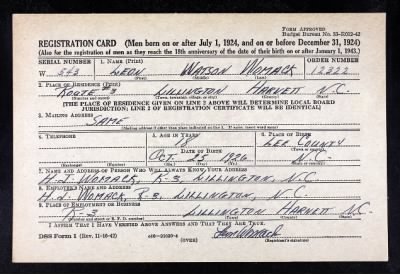 FORM APPROVED
Budget Bureau No. 33-R012-42
REGISTRATION CARD (Men born on or after July 1, 1924, and on or before December 31, 1924)
(Also for the registration of men as they reach the 18th anniversary of the date of their birth on or after January 1, 1943.)
SERIAL NUMBER 1. NAME (Print) ORDER NUMBER
W 343 LEON WATSON WOMACK 12222
(First) (Middle) (Last)
2. PLACE OF RESIDENCE (Print)
ROUTE 3 LILLINGTON HARNETT N.C.
(Number and street) (Town, township, village, or city) (County) (State)
[THE PLACE OF RESIDENCE GIVEN ON LINE 2 ABOVE WILL DETERMINE LOCAL BOARD
JURISDICTION; LINE 2 OF REGISTRATION CERTIFICATE WILL BE IDENTICAL]
3. MAILING ADDRESS
SAME
[Mailing address if other than place indicated on line 2. If same, insert word same]
4. TELEPHONE 5. AGE IN YEARS 6. PLACE OF BIRTH
18 LEE COUNTY
DATE OF BIRTH (Town or county)
OCT. 25 1926 N.C.
(Exchange) (Number) (Mo.) (Day) (Yr.) (State or country)
7. NAME AND ADDRESS OF PERSON WHO WILL ALWAYS KNOW YOUR ADDRESS
H. J. WOMACK, R-3, LILLINGTON, N.C.
8. EMPLOYER'S NAME AND ADDRESS
H. J. WOMACK, R-3, LILLINGTON, N.C.
9. PLACE OF EMPLOYMENT OR BUSINESS
R-3 LILLINGTON HARNETT N.C.
(Number and street or R. F. D. number) (Town) (County) (State)
I AFFIRM THAT I HAVE VERIFIED ABOVE ANSWERS AND THAT THEY ARE TRUE.
DSS Form 1 (Rev. 11-16-42) (OVER) Leon Womack
(Registrant's signature)